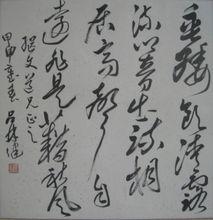 垂緌飲清露
流響出疏桐
居高聲自
遠非是藉秋風
文道兄正之
甲申